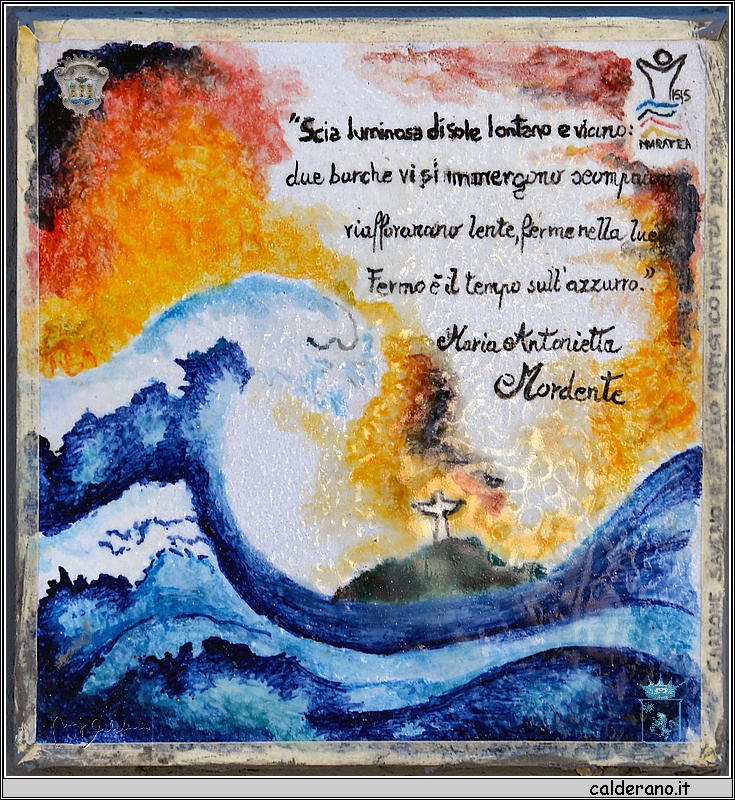 "Scia luminosa di sole lontano e vicino:
due barche vi si immergono scompaiono
riafforarano lente, ferme nella luce
Fermo è il tempo sull'azzurro."
Maria Antonietta
Mordente
ISIS
MARATEA
CIARRONE SAVERIO LICEO ARTISTICO MARATEA 2016
calderano.it